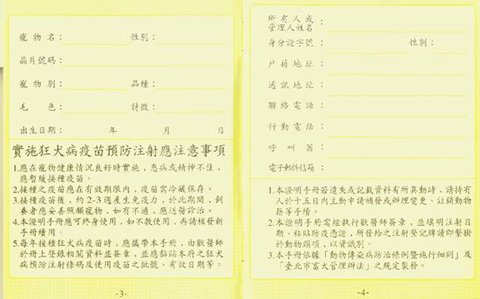 寵物名：　性別：
晶片號碼：
寵物別：　品種：
毛色：　特徵：
出生日期：　年　月　日
實施狂犬病疫苗預防注射應注意事項
1.應在寵物健康情況良好時實施，患病或精神不佳，
應暫緩接種疫苗。
2.接種之疫苗應在有效期限內，疫苗需冷藏保存。
3.接種疫苗後，約2-3週產生免疫力，於此期間，飼
養者應妥善照顧寵物，如有不適，應送醫診治。
4.本證明手冊應可終身使用，如不敷使用，再請核發新
手冊續用。
5.每年接種狂犬病疫苗時，應攜帶本手冊，由獸醫師
於冊上登錄相關資料並簽章，並應黏貼本府之狂犬
病預防注射條碼及使用疫苗之批號、有效日期等。
-3-
所有人或
管理人姓名：
身分證字號：　性別：
戶籍地址：
通訊地址：
聯絡電話：
行動電話：
呼叫器：
電子郵件信箱：
1.本證明手冊若遺失或記載資料有所異動時，請持有
人於十五日內主動申請補發或辦理變更、註銷動物
籍等手續。
2.本證明手冊需經執行獸醫師簽章，並填明注射日
期，粘貼防疫憑證，所發給之注射登記牌請即繫掛
於動物頸項，以資識別。
3.本手冊依據「動物傳染病防治條例暨施行細則」及
「臺北市畜犬管理辦法」之規定製發。
-4-